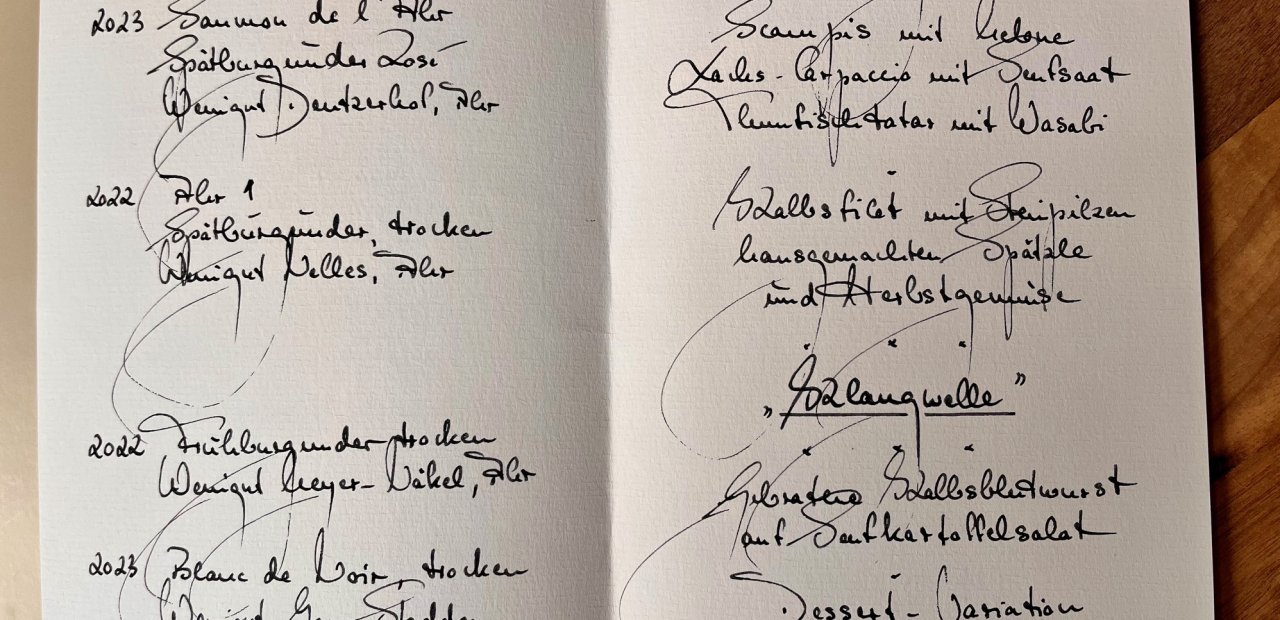 2023 Saumon de l'Ahr
Spätburgunder Rosé
Weingut Deutzerhof, Ahr
2022 Ahr 1
Spätburgunder, trocken
Weingut Nelles, Ahr
2022 Frühburgunder trocken
Weingut Meyer-Näkel, Ahr
2023 Blanc de Noir, trocken
Weingut Stodden
Scampis mit Melone
Lachs-Carpaccio mit Senfsaat
Thunfischtatar mit Wasabi
Kalbsfilet mit Steinpilzen
hausgemachten Spätzle
und Herbstgemüse
* * *
„Klangwelle"
* * *
Gebratene Kalbsblutwurst
auf Senfkartoffelsalat
Dessert-Variation